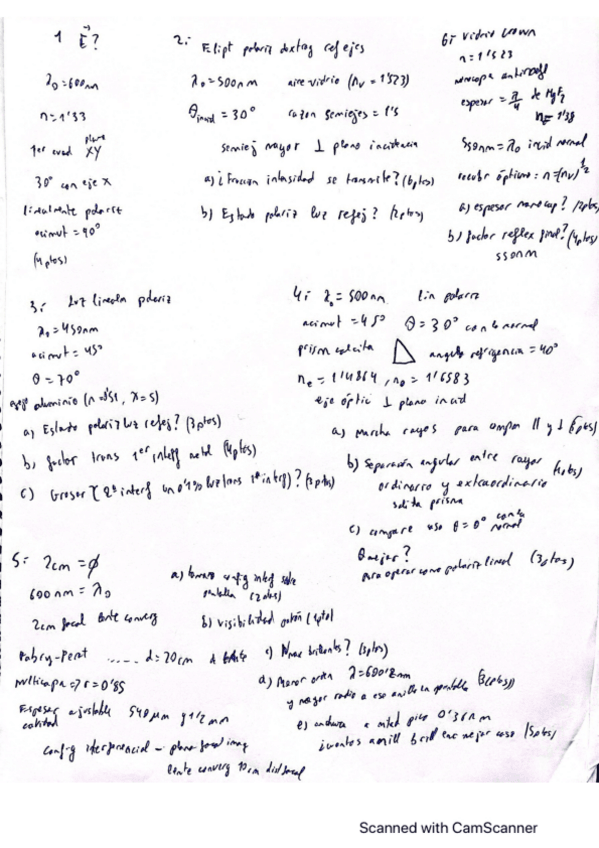 1 E⃗?
λ₀=600nm
n=1'33
1er cuad plano XY
30° con eje X
linealmente polariz
acimut = 90°
(4ptos)
2: Elipt polariz dextrog reflejes
λ₀ = 500nm aire-vidrio (nv = 1'523)
θincid = 30° razon semiejes = 1'5
semiej mayor ⊥ plano incidencia
a) ¿Fraccion intensidad se transmite? (6ptos)
b) Estado polariz luz reflej? (2ptos)
6: vidrio crown
n=1'523
monocapa antirreflej
espesor = λ/4 de MgF2
n=1'38
550nm=λ₀ incid normal
recubr óptimo: n=(nv)^1/2
a) espesor monocap? (2ptos)
b) factor reflex final? (4ptos)
550nm
3: Luz lineal polariz
λ₀=450nm
acimut = 45°
θ = 70°
aluminio (n=0'51, χ=5)
a) Estado polariz luz reflej? (3ptos)
b) factor trans 1er interf metal (4ptos)
c) Grosor
4: λ₀ = 500nm lin polariz
acimut = 45° θ = 30° con la normal
prisma calcita angulo refrigencia = 40°
ne = 1'4864, no = 1'6583
eje óptic ⊥ plano incid
a) Marcha rayos para compon || y ⊥
b) Separación angular entre rayos
ordinario y extraordinario
salida prisma
c) compare uso θ = 0° con la normal
θ mejor?
para operar como polariz lineal (3ptos)
5: 2cm = ϕ
600nm = λ₀
2cm focal lente converg
Fabry-Perot ..... d=20cm
multicapa => r = 0'85
Espesor ajustable 540μm y 1'2mm
config interferencial - plano focal imag
lente converg dist focal
a) tamaño config interf sobre
pantalla (2ptos)
b) visibilidad patrón
c) Nmax brillantes? (3ptos)
d) Menor orden λ=600'2nm
y mayor radio a ese anillo en pantalla
e) anchura a mitad pico 0'36nm
anill brill en mejor caso (5ptos)
Scanned with CamScanner